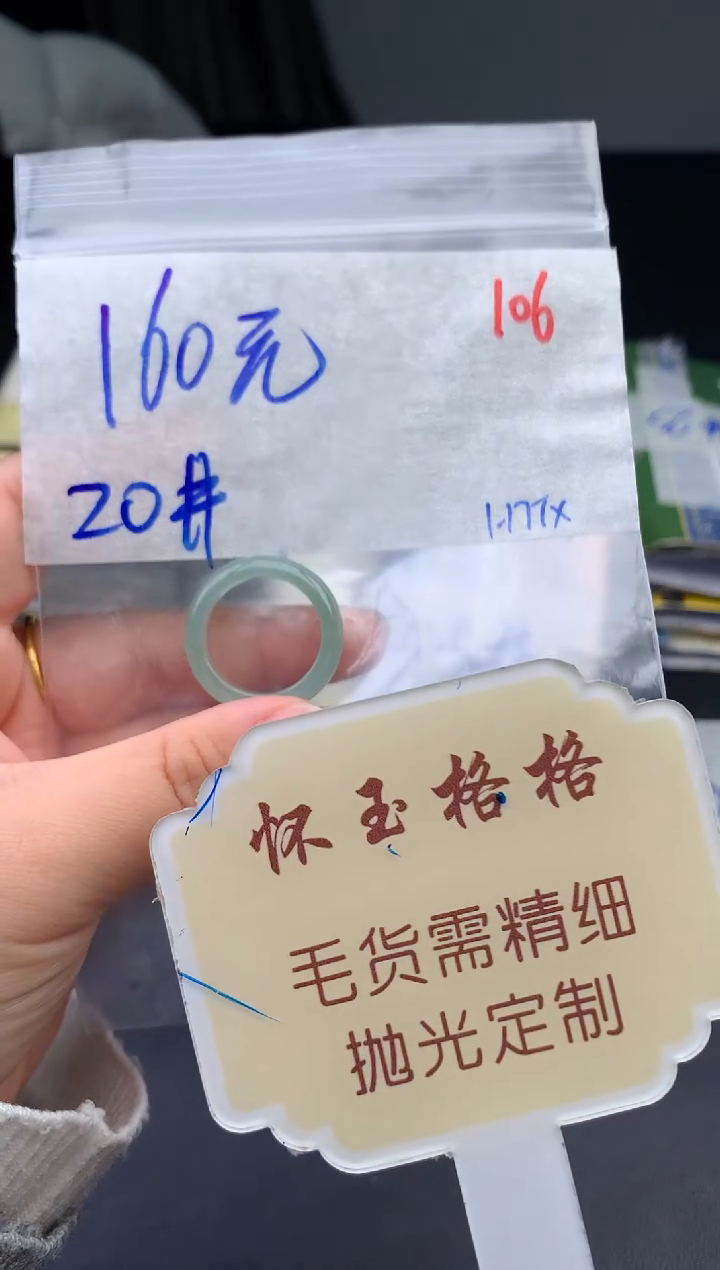 160元
106
20#
怀玉格格
毛货需精细
抛光定制